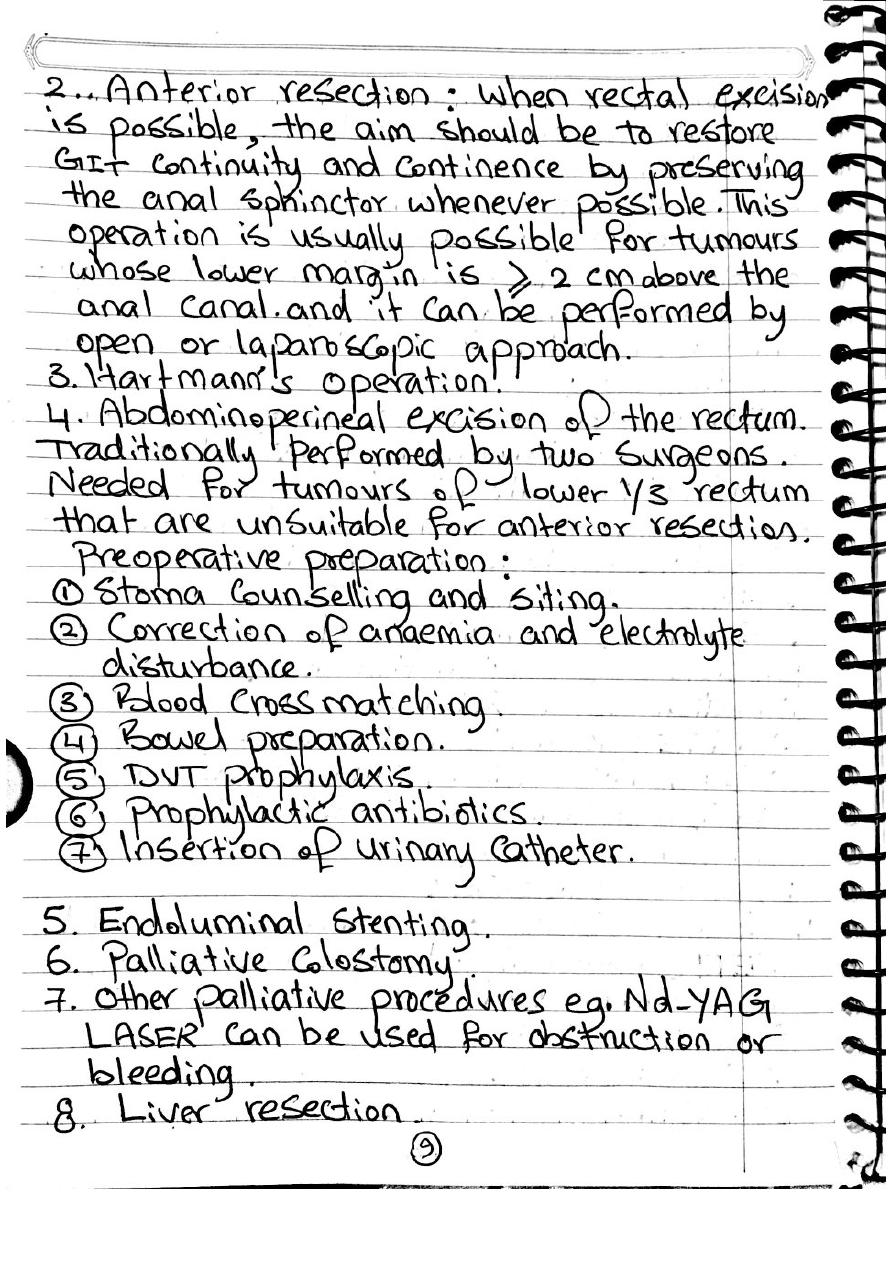 2... Anterior resection : when rectal excision
is possible, the aim should be to restore
GIT continuity and continence by preserving
the anal sphinctor whenever possible. This
operation is usually possible for tumours
whose lower margin is ⩾ 2 cm above the
anal canal. and it can be performed by
open or laparoscopic approach.
3. Hartmann's operation.
4. Abdominoperineal excision of the rectum.
Traditionally performed by two surgeons.
Needed for tumours of lower 1/3 rectum
that are unsuitable for anterior resection.
Preoperative preparation :
① Stoma Counselling and siting.
② Correction of anaemia and electrolyte
disturbance.
③ Blood cross matching.
④ Bowel preparation.
⑤ DVT prophylaxis.
⑥ Prophylactic antibiotics.
⑦ Insertion of urinary catheter.
5. Endoluminal stenting.
6. Palliative Colostomy.
7. Other palliative procedures eg. Nd-YAG
LASER can be used for obstruction or
bleeding.
8. Liver resection.
⑨